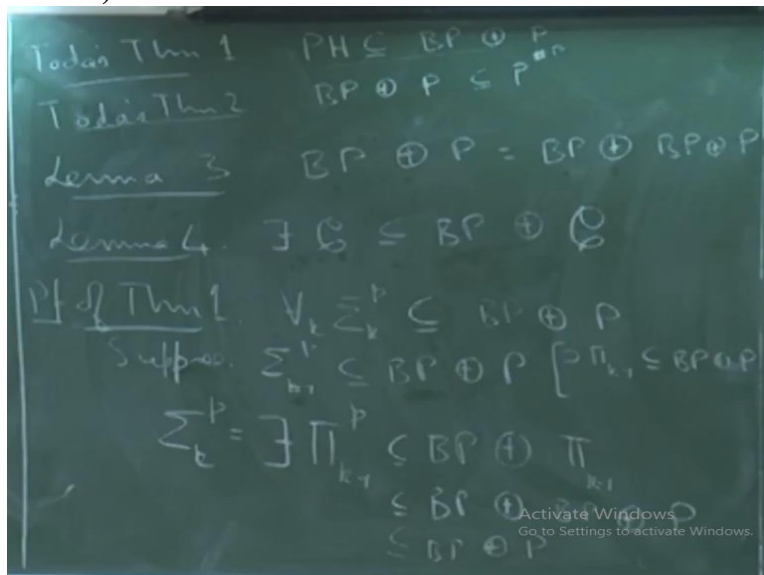 Toda's Thm 1 PH ⊆ BP ⊕ P
Toda's Thm 2 BP ⊕ P ⊆ P
Lemma 3 BP ⊕ P = BP ⊕ BP ⊕ P
Lemma 4. ∃ C ⊆ BP ⊕ C
Pf of Thm 1. ∀k Σ_k^p ⊆ BP ⊕ P
Suppose. Σ_{k-1}^p ⊆ BP ⊕ P [⇒ Π_{k-1} ⊆ BP ⊕ P
Σ_k^p = ∃ Π_{k-1}^p ⊆ BP ⊕ Π_{k-1}
⊆ BP ⊕ BP ⊕ P
⊆ BP ⊕ P
Activate Windows
Go to Settings to activate Windows.